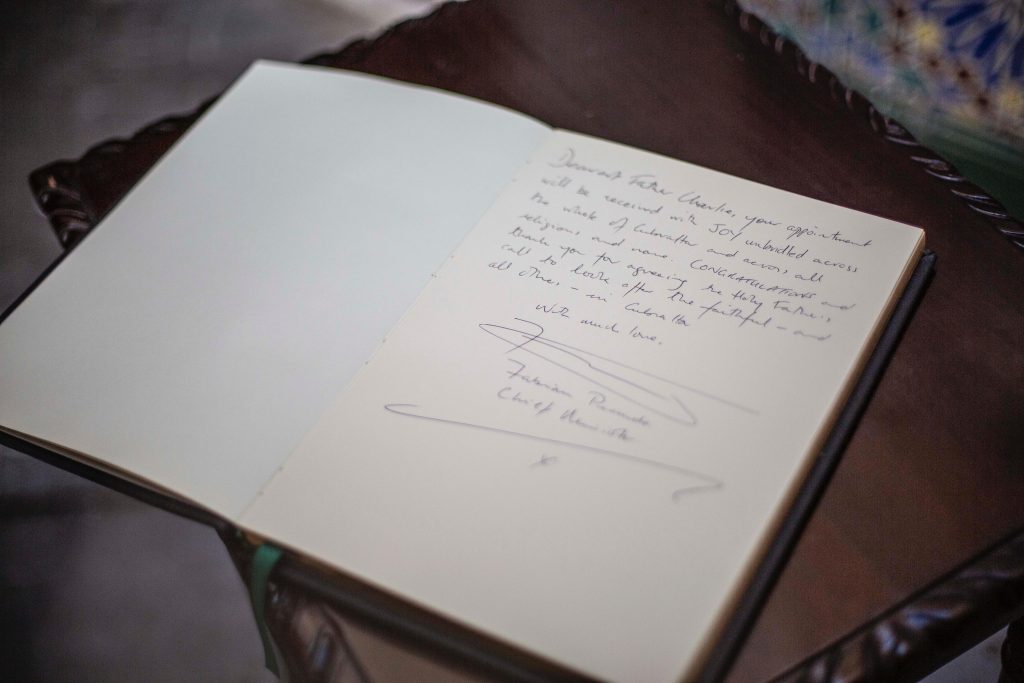 Dearest Father Charlie, your appointment
will be received with JOY unbridled across
the whole of Gibraltar and across all
religions, and none. CONGRATULATIONS and
thank you for agreeing the Holy Father's
call to look after the faithful - and
all others - in Gibraltar
With much love,
Fabian Picardo
Chief Minister